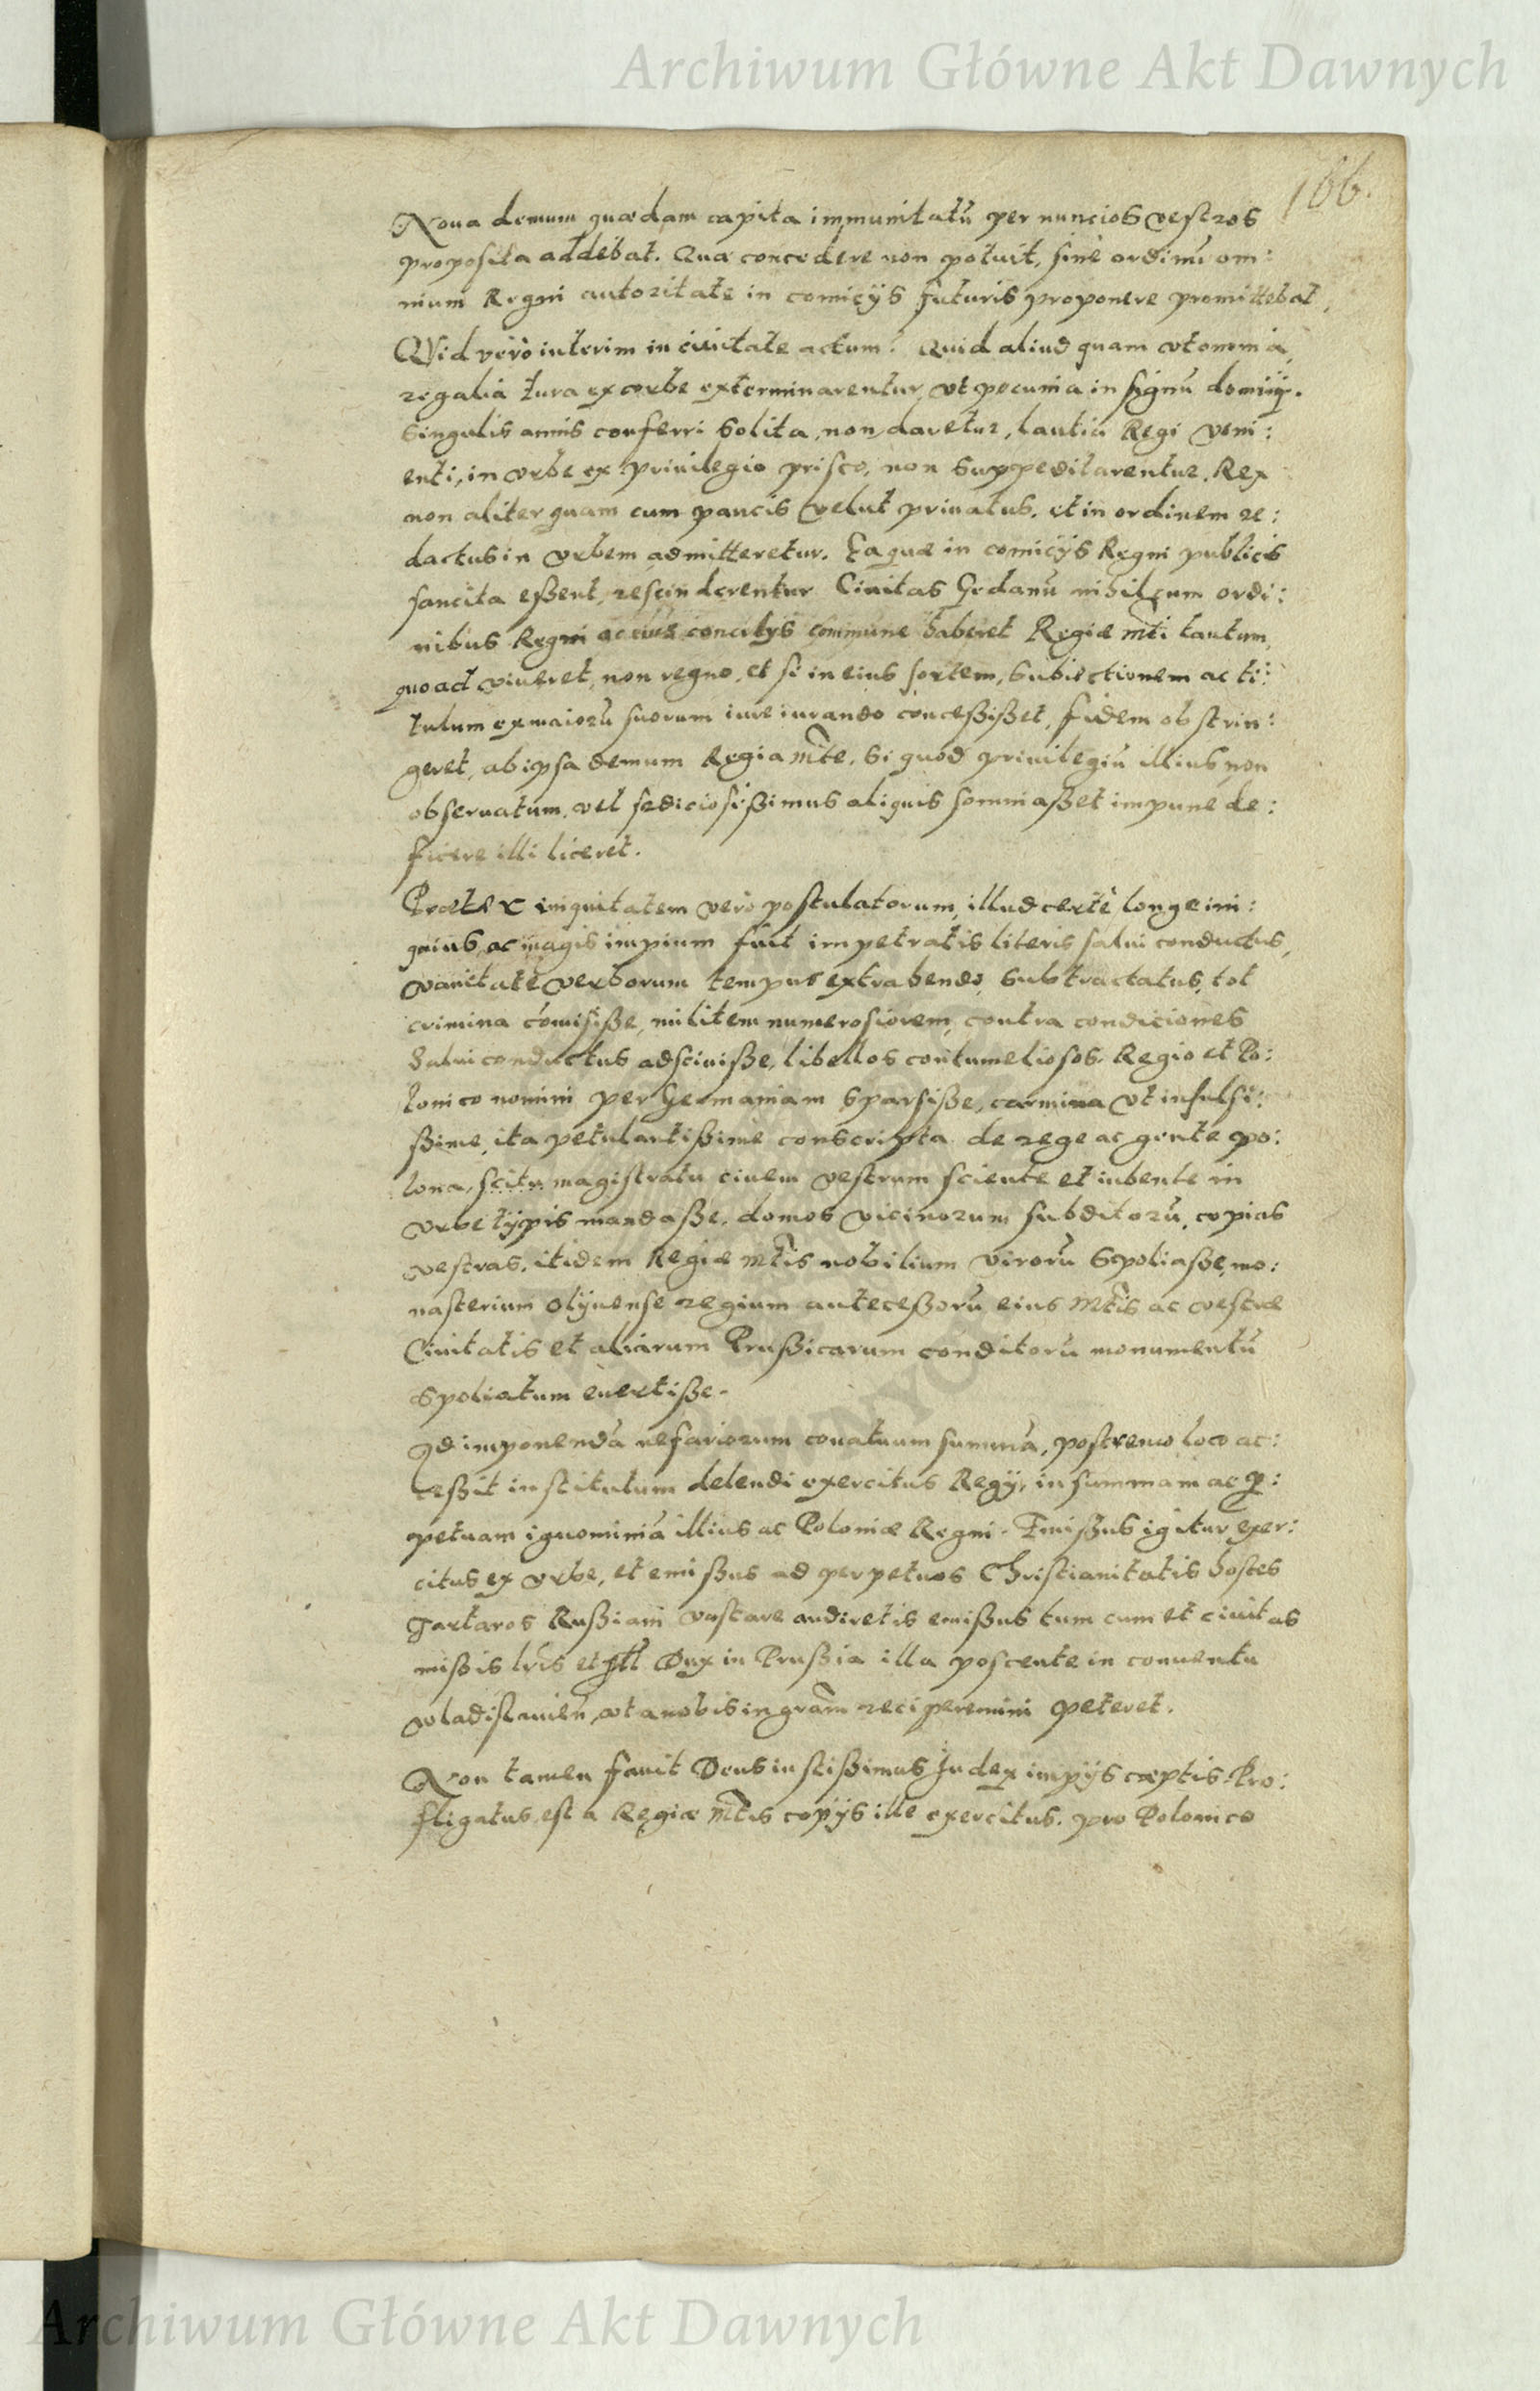 Archiwum Główne Akt Dawnych
166.
Noua demum quædam capita immunitatū per nuncios vestros
proposita addebat. Quæ concedere non potuit, sine ordinū om:
nium Regni autoritate in comicijs futuris proponere promittebat,
QVid verò interim in ciuitate actum? Quid aliud quam vt omnia
regalia iura ex vrbe exterminarentur, vt pecunia in signū dominij
singulis annis conferri solita, non daretur, lautia Regi veni:
enti, in vrbe ex priuilegio prisco, non suppeditarentur. Rex
non aliter quam cum paucis velut priuatus, et in ordinem re:
dactus in vrbem admitteretur. Ea quæ in comicijs Regni publicis
sancita eßent, rescinderentur Ciuitas Gedanū nihil cum ordi:
nibus Regni ac eius concilijs commune haberet Regiæ mti tantum,
quoad viueret, non regno, et si in eius sortem, subiectionem ac ti:
tulum ex maiorū suorum iure iurando conceßißet, fidem obstrin:
geret, ab ipsa demum Regia Mte, si quod priuilegiū illius non
obseruatum, vel sediciosißimus aliquis somniaßet impunè de:
ficere illi liceret.
Præter iniquitatem verò postulatorum, illud certè longe ini:
quius, ac magis impium fuit impetratis literis salui conductus,
vanitate verborum tempus extrahendo, sub tractatus, tot
crimina comisiße, militem numerosiorem, contra condiciones
salui conductus adsciuiße, libellos contumeliosos, Regio et Po:
lonico nomini per Germaniam sparsiße, carmina vt insulsi:
ßime, ita petulantißime conscripta de rege ac gente po:
lona, scitu magistratu ciuem vestrum sciente et iubente in
vrbe typis mandaße, domos vicinorum subditorū, copias
vestras, itidem Regiæ Mtis nobilium virorū spoliaße, mo:
nasterium Olyuense regium anteceßorū eius Mtis ac vestræ
Ciuitatis et aliarum Prußicarum conditorū monumentū
spoliatum euertiße.
Ad imponendā nefariorum conatuum summā, postremo loco ac:
ceßit institutum delendi exercitus Regij, in summam ac per:
petuam ignominiā illius ac Poloniæ Regni. Emißus igitur exer:
citus ex vrbe, et emißus ad perpetuos Christianitatis hostes
Tartaros Rußiam vastare audiretis emißus tum cum et ciuitas
mißis lris et Dux in Prußia illa poscente in conuentu
vladislauien, vt a nobis in gram reciperemini peteret.
Non tamen fauit Deus iustißimus Judex impijs cœptis. Pro:
fligatus est a Regiæ Mtis copijs ille exercitus, pro Polonico
Archiwum Główne Akt Dawnych